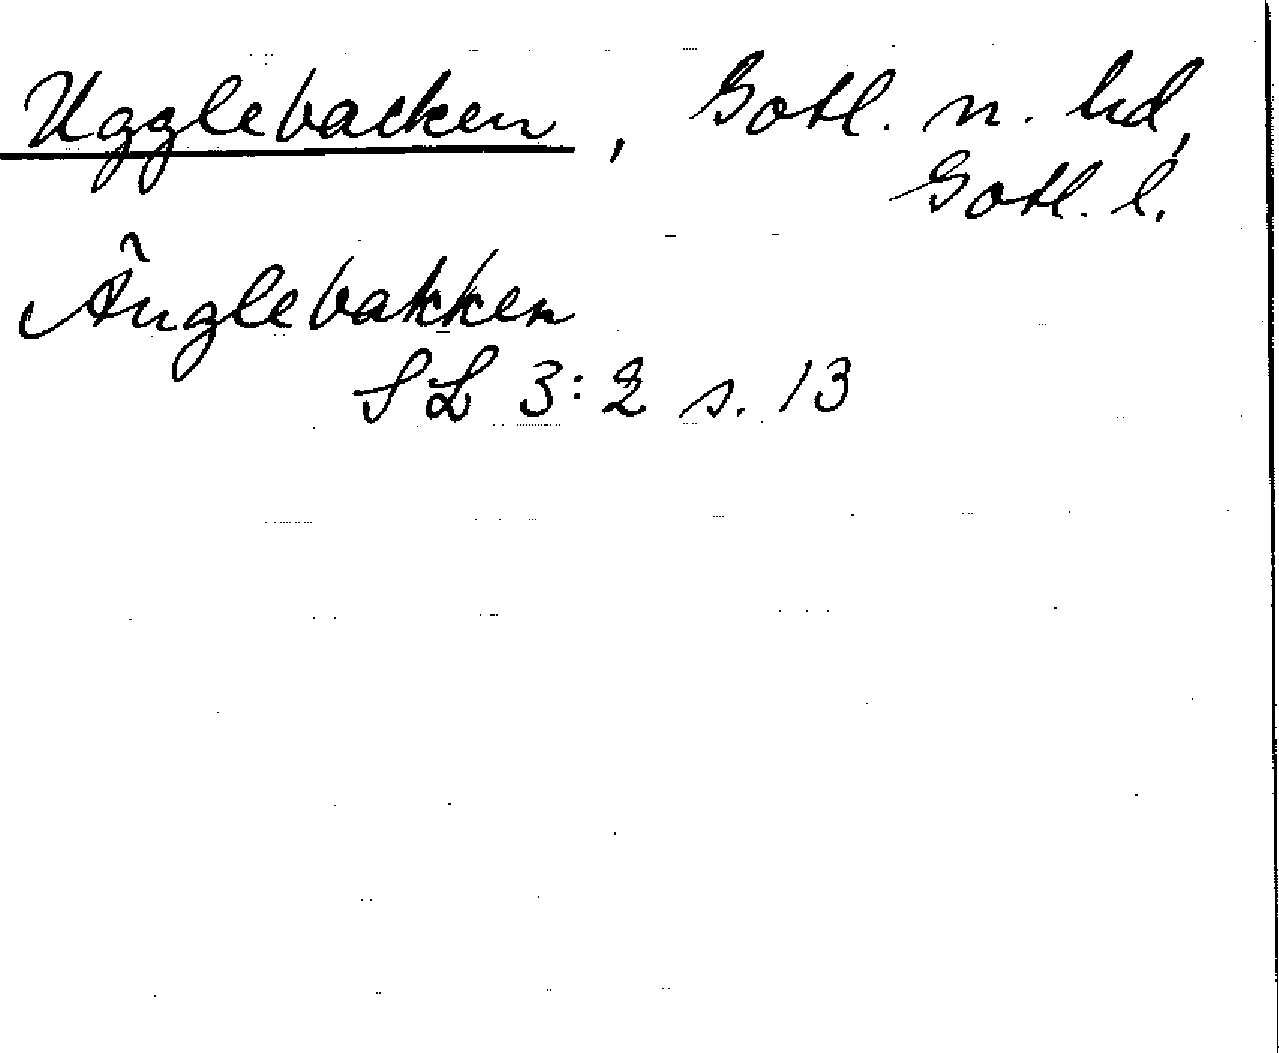 Ugglebacken, Gotl. n. hd,
Gotl. l.
Änglebakken
SL 3:2 s. 13